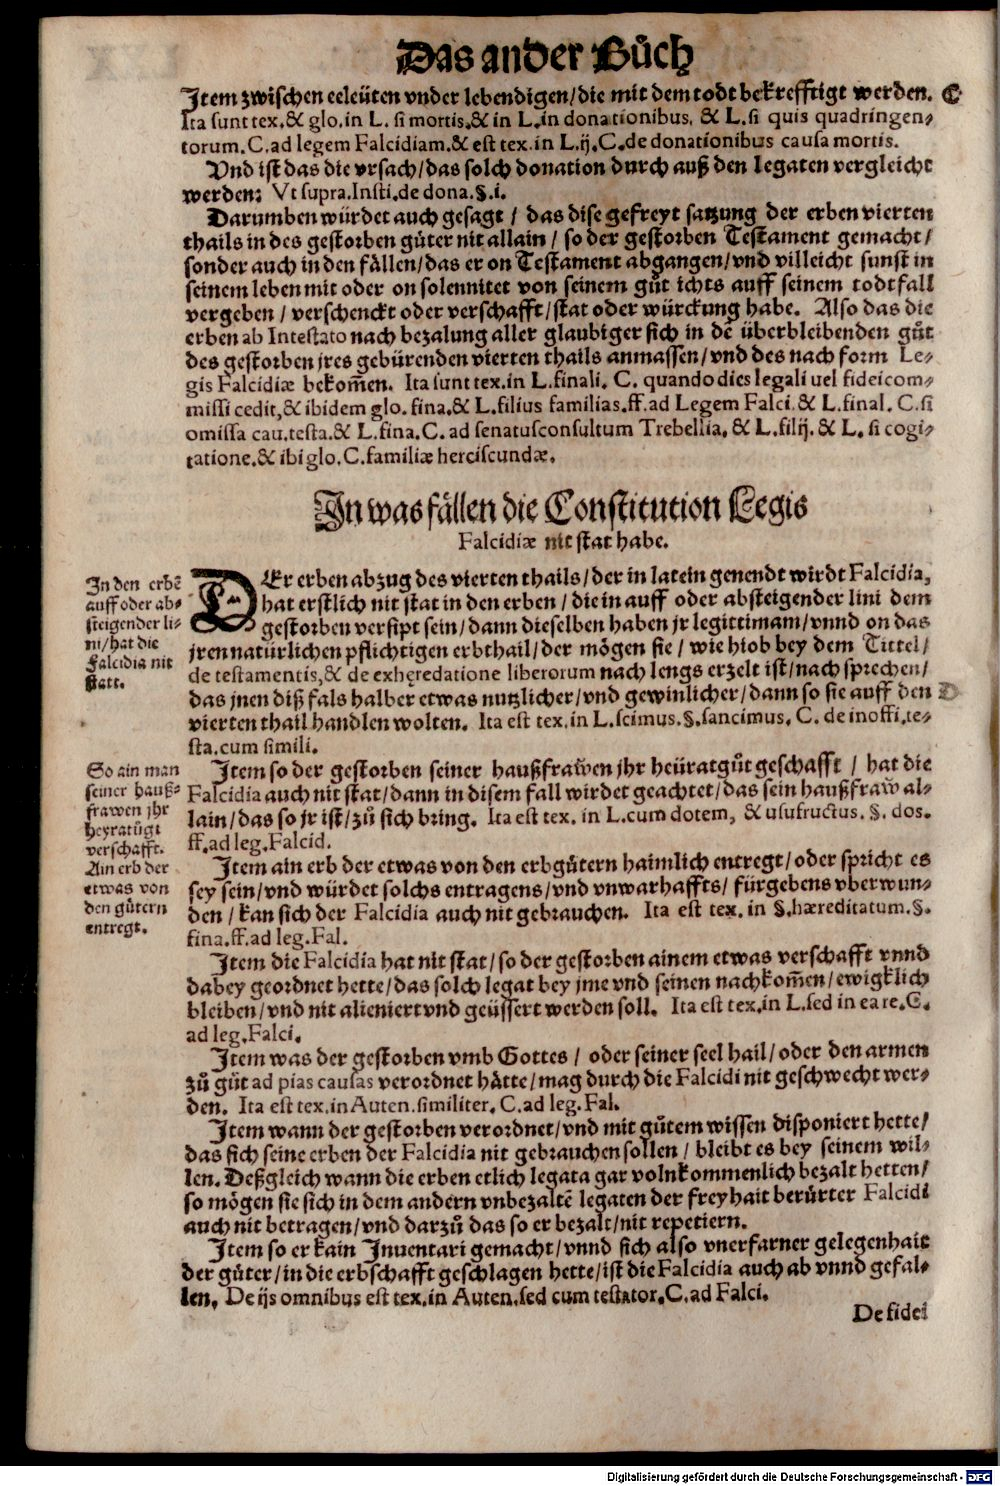 Das ander Bůch
Item zwischen eeleüten vnder lebendigen/die mit dem todt bekrefftigt werden. C
Ita sunt tex.& glo.in L. si mortis.& in L.in donationibus. & L.si quis quadringen-
torum.C.ad legem Falcidiam.& est tex.in L.ij.C.de donationibus causa mortis.
Vnd ist das die vrsach/das solch donation durch auß den legaten vergleicht
werden: Vt supra.Insti.de dona.§.i.
Darumben würdet auch gesagt / das dise gefreyt satzung der erben vierten
thails in des gestorben gůter nit allain / so der gestorben Testament gemacht/
sonder auch in den fällen/das er on Testament abgangen/vnd villeicht sunst in
seinem leben mit oder on solennitet von seinem gůt ichts auff seinem todtfall
vergeben / verschenckt oder verschafft/stat oder würckung habe. Also das die
erben ab Intestato nach bezalung aller glaubiger sich in dē überbleibenden gůt
des gestorben jres gebürenden vierten thails anmassen/vnd des nach form Le-
gis Falcidiæ bekom̄en. Ita sunt tex.in L.finali. C. quando dies legati uel fideicom-
missi cedit,& ibidem glo. fina.& L.filius familias.ff.ad Legem Falci.& L.final. C.si
omissa cau.testa.& L.fina.C. ad senatusconsultum Trebellia. & L.filij. & L. si cogi-
tatione.& ibi glo.C.familiæ herciscundæ.
In was fällen die Constitution Legis
Falcidiæ nit stat habe.
In den erbē
auff oder ab-
steigender li-
ni/hat die
Falcidia nit
statt.
DEr erben abzug des vierten thails/der in latein genendt wirdt Falcidia,
hat erstlich nit stat in den erben / die in auff oder absteigender lini dem
gestorben versipt sein/dann dieselben haben jr legittimam/vnnd on das
jren natürlichen pflichtigen erbthail/der mögen sie / wie hiob bey dem Tittel/
de testamentis,& de exhęredatione liberorum nach lengs erzelt ist/nach sprechen/
das jnen diß fals halber etwas nutzlicher/vnd gewinlicher/dann so sie auff den D
vierten thail handlen wolten. Ita est tex.in L.scimus.§.sancimus. C. de inoffi.te-
sta.cum simili.
So ain man
seiner hauß-
frawen jhr
heyratůgt
verschafft.
Item so der gestorben seiner haußfrawen jhr heüratgůt geschafft / hat die
Falcidia auch nit stat/dann in disem fall wirdet geachtet/das sein haußfraw al-
lain/das so jr ist/zů sich bring. Ita est tex. in L.cum dotem, & usufructus. §. dos.
ff.ad leg.Falcid.
Ain erb der
etwas von
den gütern
entregt.
Item ain erb der etwas von den erbgůtern haimlich entregt/oder spricht es
sey sein/vnd würdet solchs entragens/vnd vnwarhaffts/ fürgebens vberwun-
den / kan sich der Falcidia auch nit gebrauchen. Ita est tex. in §.hæreditatum.§.
fina.ff.ad leg.Fal.
Item die Falcidia hat nit stat/so der gestorben ainem etwas verschafft vnnd
dabey geordnet hette/das solch legat bey jme vnd seinen nachkom̄en/ewigklich
bleiben/vnd nit alieniert vnd geüssert werden soll. Ita est tex.in L.sed in ea re.C.
ad leg.Falci.
Item was der gestorben vmb Gottes / oder seiner seel hail/oder den armen
zů gůt ad pias causas verordnet hätte/mag durch die Falcidi nit geschwecht wer-
den. Ita est tex.in Auten.similiter. C.ad leg.Fal.
Item wann der gestorben verordnet/vnd mit gůtem wissen disponiert hette/
das sich seine erben der Falcidia nit gebrauchen sollen / bleibt es bey seinem wil-
len. Deßgleich wann die erben etlich legata gar volnkommenlich bezalt hetten/
so mögen sie sich in dem andern vnbezaltē legaten der freyhait berürter Falcidi
auch nit betragen/vnd darzů das so er bezalt/nit repetiern.
Item so er kain Inuentari gemacht/vnnd sich also vnerfarner gelegenhait
der gůter/in die erbschafft geschlagen hette/ist die Falcidia auch ab vnnd gefal-
len. De ijs omnibus est tex.in Auten.sed cum testator.C.ad Falci.
De fidei
Digitalisierung gefördert durch die Deutsche Forschungsgemeinschaft - DFG